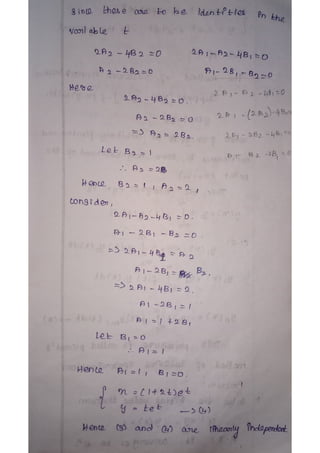 Since these are to be Identities in the
variable t
2A2 - 4B2 = 0    2A1 - A2 - 4B1 = 0
A2 - 2B2 = 0    A1 - 2B1 - B2 = 0
Here
2A2 - 4B2 = 0.
A2 - 2B2 = 0
=> A2 = 2B2.
Let B2 = 1
∴ A2 = 2
Hence, B2 = 1, A2 = 2,
consider,
2A1 - A2 - 4B1 = 0.
A1 - 2B1 - B2 = 0
=> 2A1 - 4B1 = A2
A1 - 2B1 = B2.
=> 2A1 - 4B1 = 2.
A1 - 2B1 = 1
A1 = 1 + 2B1
Let B1 = 0
∴ A1 = 1
Hence A1 = 1, B1 = 0.
{ x = (1+2t)et
y = tet → (4)
Hence (3) and (4) are linearly independent